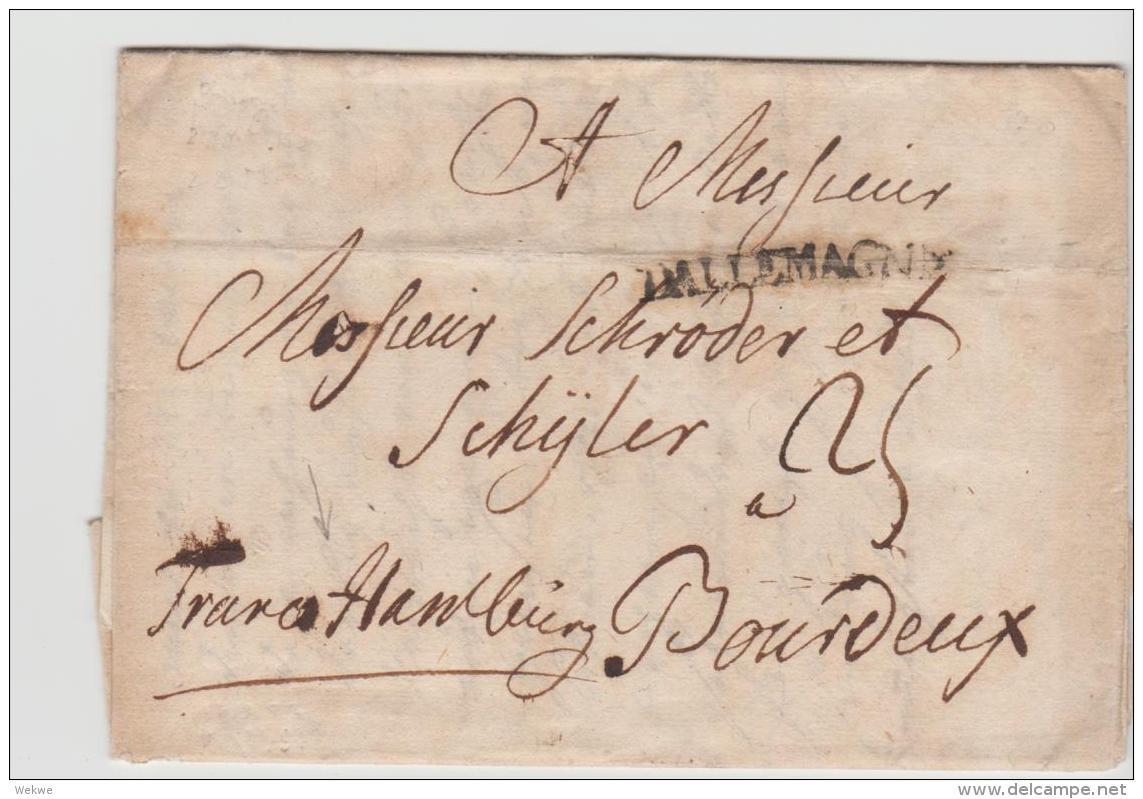 A Messieur
DALLEMAGNE
Messieur Schröder et
Schÿler 25
a
Franco Hamburg Bourdeux
Wekwe
www.delcampe.net